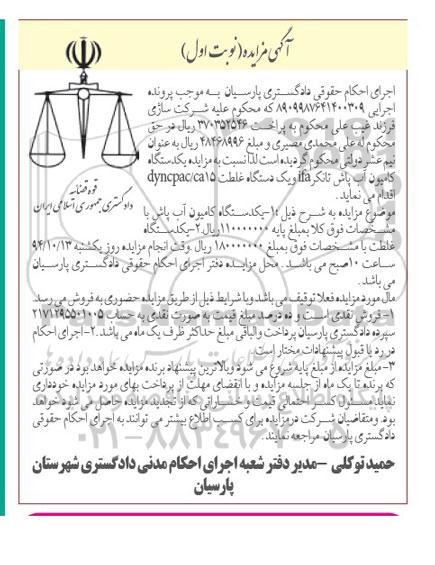 آگهی مزایده (نوبت اول)
قوه قضائیه
دادگستری جمهوری اسلامی ایران
اجرای احکام حقوقی دادگستری پارسیان به موجب پرونده
اجرایی ۸۹۰۹۹۸۷۶۴۱۴۰۰۳۰۹ که محکوم علیه شرکت سازی
فرزند غیب علی محکوم به پراخت ۳۷۰۳۵۲۵۴۶ ریال در حق
محکوم له علی محمدی مصیری و مبلغ ۴۸۴۶۸۹۹۶ ریال به عنوان
نیم عشر دولتی محکوم گردیده است لذا نسبت به مزایده یکدستگاه
کامیون آب پاش تانکر ifa و یک دستگاه غلطت dyncpac/ca۱۵
اقدام می نماید.
موضوع مزایده به شرح ذیل :۱-یکدستگاه کامیون آب پاش با
مشخصات فوق کلا بمبلغ پایه ۱۱۰۰۰۰۰۰۰ ریال.۲-یکدستگاه
غلطت با مشخصات فوق بمبلغ ۱۸۰۰۰۰۰۰۰ ریال .وقت انجام مزایده روز یکشنبه ۹۴/۱۰/۱۳
ساعت ۱۰صبح می باشد. محل مزایده دفتر اجرای احکام حقوقی دادگستری پارسیان می
باشد.
مال مورد مزایده فعلا توقیف می باشد و با شرایط ذیل از طریق مزایده حضوری به فروش می رسد.
۱-فروش نقدی است و ده درصد مبلغ قیمت به صورت نقدی به حساب ۲۱۷۱۲۹۵۵۰۱۰۰۵
سپرده دادگستری پارسیان پرداخت والباقی مبلغ حداکثر ظرف یک ماه می باشد.۲-اجرای احکام
در رد یا قبول پیشنهادات مختار است.
۳-مبلغ مزایده از مبلغ پایه شروع می شود وبالاترین پیشنهاد برنده مزایده خواهد بود در صورتی
که برنده تا یک ماه از جلسه مزایده و با انقضای مهلت از پرداخت بهای مورد مزایده خودداری
نماید مسئول کسر احتمالی قیمت و خساراتی که از تجدید مزایده حاصل می شود خواهد
بود. ومتقاضیان شرکت درمزایده برای کسب اطلاع بیشتر می توانند به اجرای احکام حقوقی
دادگستری پارسیان مراجعه نمایند.
حمید توکلی -مدیر دفتر شعبه اجرای احکام مدنی دادگستری شهرستان
پارسیان